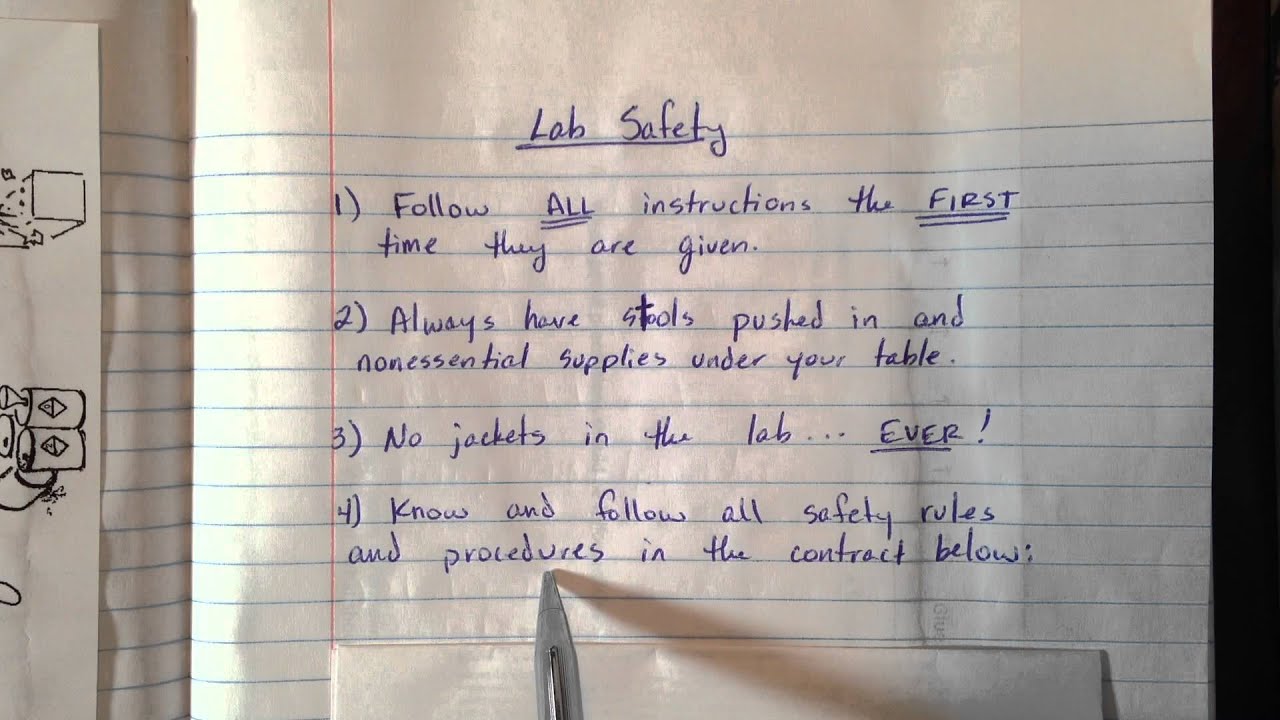 Lab Safety
1) Follow ALL instructions the FIRST
time they are given.
2) Always have stools pushed in and
nonessential supplies under your table.
3) No jackets in the lab... EVER!
4) Know and follow all safety rules
and procedures in the contract below: